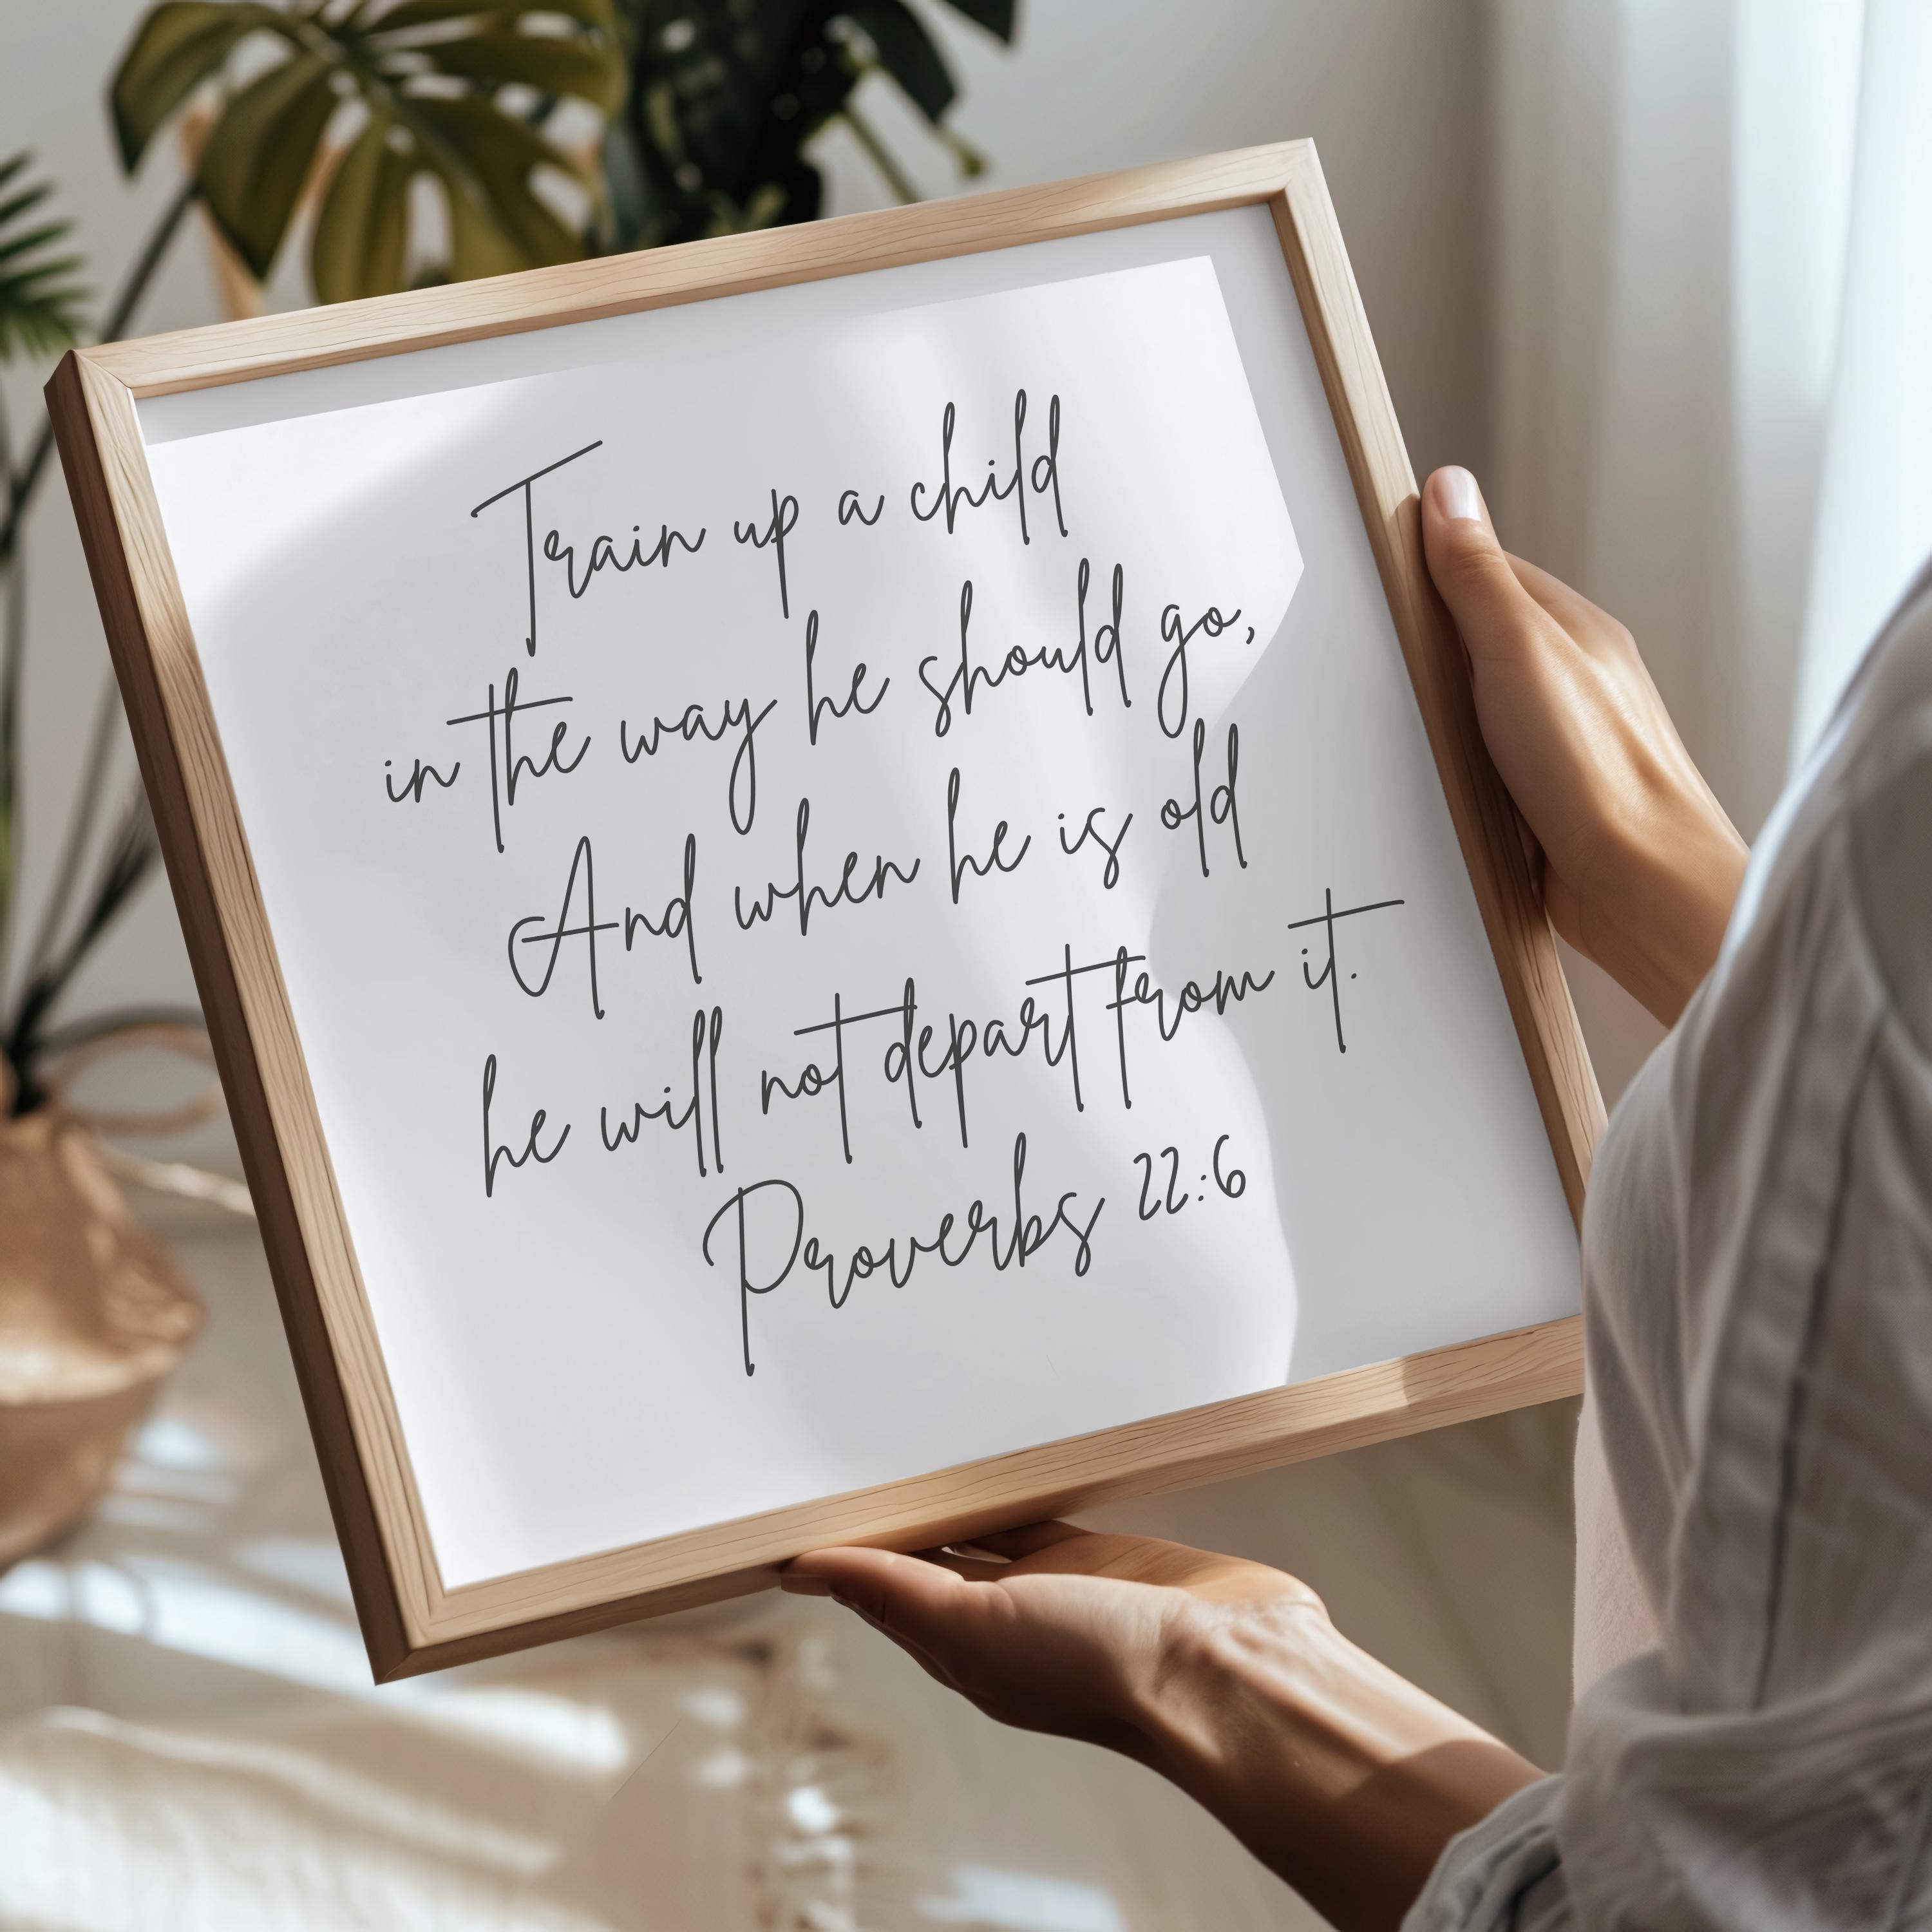 Train up a child
in the way he should go,
And when he is old
he will not depart from it.
Proverbs 22:6